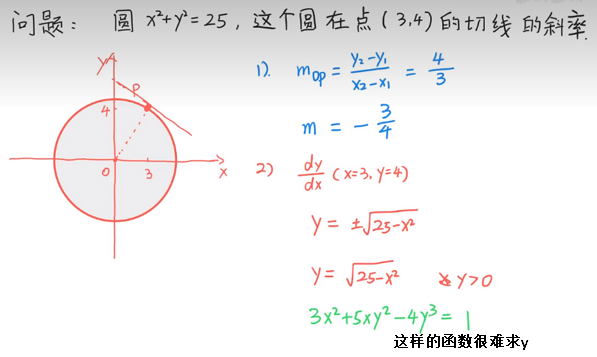 问题: 圆 x²+y²=25, 这个圆在点(3,4)的切线的斜率.
y
P
4
0
3
x
1). m_OP = (y₂-y₁)/(x₂-x₁) = 4/3
m = -3/4
2) dy/dx (x=3, y=4)
y = ±√(25-x²)
y = √(25-x²) y>0
3x²+5xy²-4y³=1
这样的函数很难求y